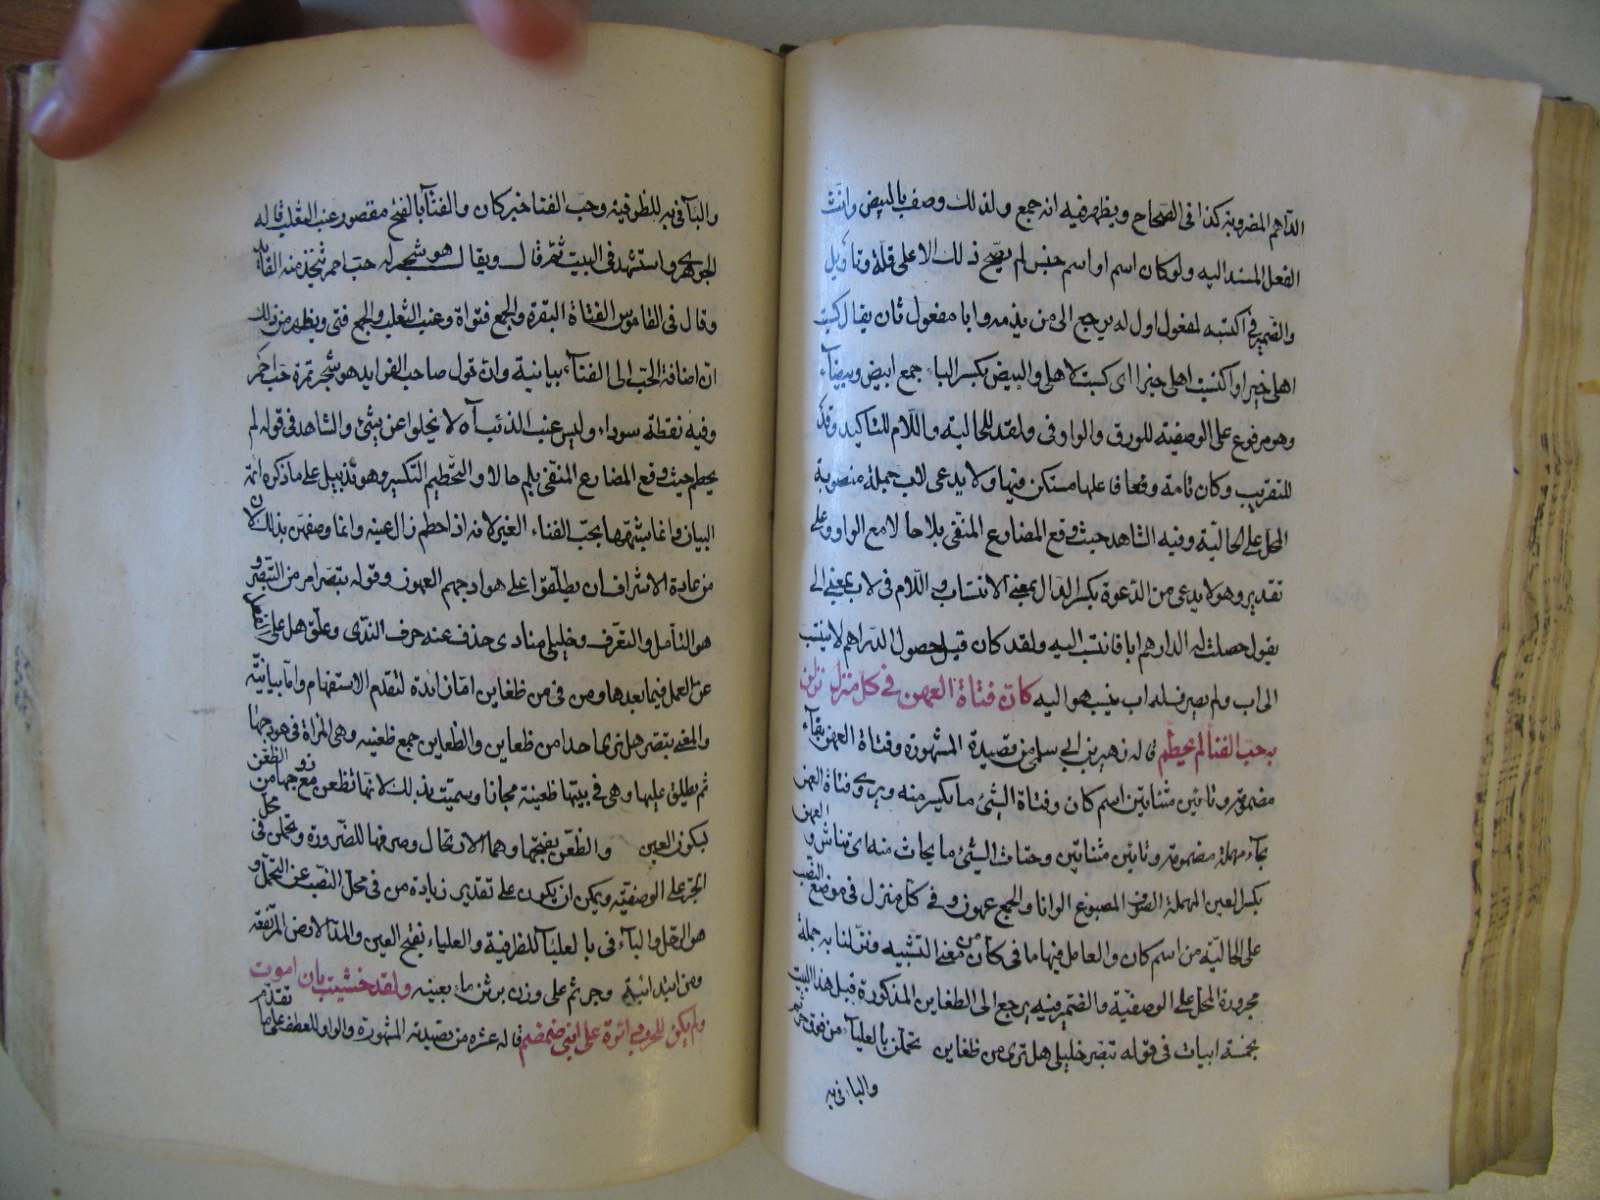 الدراهم المضروبة كذا فى الصحاح ويظهر فيه انه جمع ولذلك وصف بالبيض وانث
الفعل المسند اليه ولو كان اسم او اسم جنس لم يصح ذلك الا على قلة وتأويل
والضمير فى اكتسبه لمفعول اول له يرجع الى من يذمه وابا مفعول ثان يقال كسبت
اهلى خيرا واكتسبت اهلى خيرا اى كسبت لاهلى والبيض بكسر الباء جمع ابيض وبيضاء
وهو مرفوع على الوصفية للورق والواو فى ولقد للحالية واللام للتاكيد وقد
للتقريب وكان تامة وفعا فاعلها مستكن فيها ولا يدعى لاب جملة منصوبة
المحل على الحالية وفيه الشاهد حيث وقع المضارع المنفى بلا حالا مع الواو وعلى
تقدير وهو لا يدعى من الدعوة بكسر الدال بمعنى الانتساب واللام فى لاب بمعنى الى
يقول حصلت له الدراهم ابا فانتسب اليه ولقد كان قبل حصول الدراهم لا ينتسب
الى اب ولم يصر فسله اب ينسب هو اليه كان فتاة العهن فى كل منزل نزلن
به حب الفنا لم يحطم قاله زهير بن ابى سلمى من قصيدة المشهورة وفتاة العهن بفاء
مضمومة وتائين مثناتين اسم كان وفتاة الشئ ما يكسر منه ويروى وفتاة العهن
بحاء مهملة مضمومة وتائين مثناتين وحتات الشئ ما يحات منه اى تناش والعهن
بكسر العين المهملة الصوف المصبوغ الوانا والجمع عهون وفى كل منزل فى موضع النصب
على الحالية من اسم كان والعامل فيها ما فى كان من معنى التشبيه ونزلنا به جملة
مجرورة المحل على الوصفية والضمير فيه يرجع الى الظعاين المذكورة قبل هذا البيت
بخمسة ابيات فى قوله تبصر خليلى هل ترى من ظعاين تحملن بالعلياء من فوق جرثم
والبا فى به
والبآ فى به للظرفية وحب الفنا خبر كان والفنآ بالفتح مقصور عنب الثعلب قاله
الجوهرى واستشهد فى البيت ثم قال ويقال هو شجر له حب احمر تتخذ منه القلايد
وقال فى القاموس الفتاة البقرة والجمع فنواة وعنب الثعلب والجمع فتى ويظهر من ذلك
ان اضافة الحب الى الفنآء بيانية وان قول صاحب الفرايد هو شجر ثمرة حب احمر
وفيه نقطة سوداء وليس عنب الذئب آه لا يخلوا عن شئ والشاهد فى قوله لم
يحطم حيث وقع المضارع المنفى بلم حالا والتحطيم التكسير وهو تذييل على ما ذكره ائمة
البيان وانما شبهها بحب الفناء الغير لانه اذا حطم زال عينه وانما وصفهن بذلك لان
من عادة الاشراف ان يطلقوا على هوادجهم العهون وقوله تبصر امر من التبصر و
هو التأمل والتعرف وخليلى منادى حذف عنه حرف الندى وعلق هل على تبصر
عن العمل فيما بعدها ومن فى من ظغاين اما زائدة لتقدم الاستفهام واما بيانية
والمعنى تبصر هل ترى احدا من ظعاين والظعاين جمع ظعينه وهى المراة فى هودجها
ثم يطلق عليها وهى فى بيتها ظعينة مجازا وسميت بذلك لانها تظعن مع زوجها من الظعن
بسكون العين والظعن بفتحها وهما الارتحال وصرفها للضرورة وتحملن فى محل
الجر على الوصفية ويمكن ان يكون على تقدير زيادة من فى محل النصب عن التحمل و
هو الرحل والبآء فى بالعليآ للظرفية والعلياء بفتح العين والمد الارض المرتفعة
ومن ابتدائية وجرثم على وزن برثن ماء بعينه ولقد خشيت بان اموت
ولم يكن للحرب دائرة على ابنى ضمضم قاله عنتره من قصيدته المشهورة والواو للعطف على ما تقدم